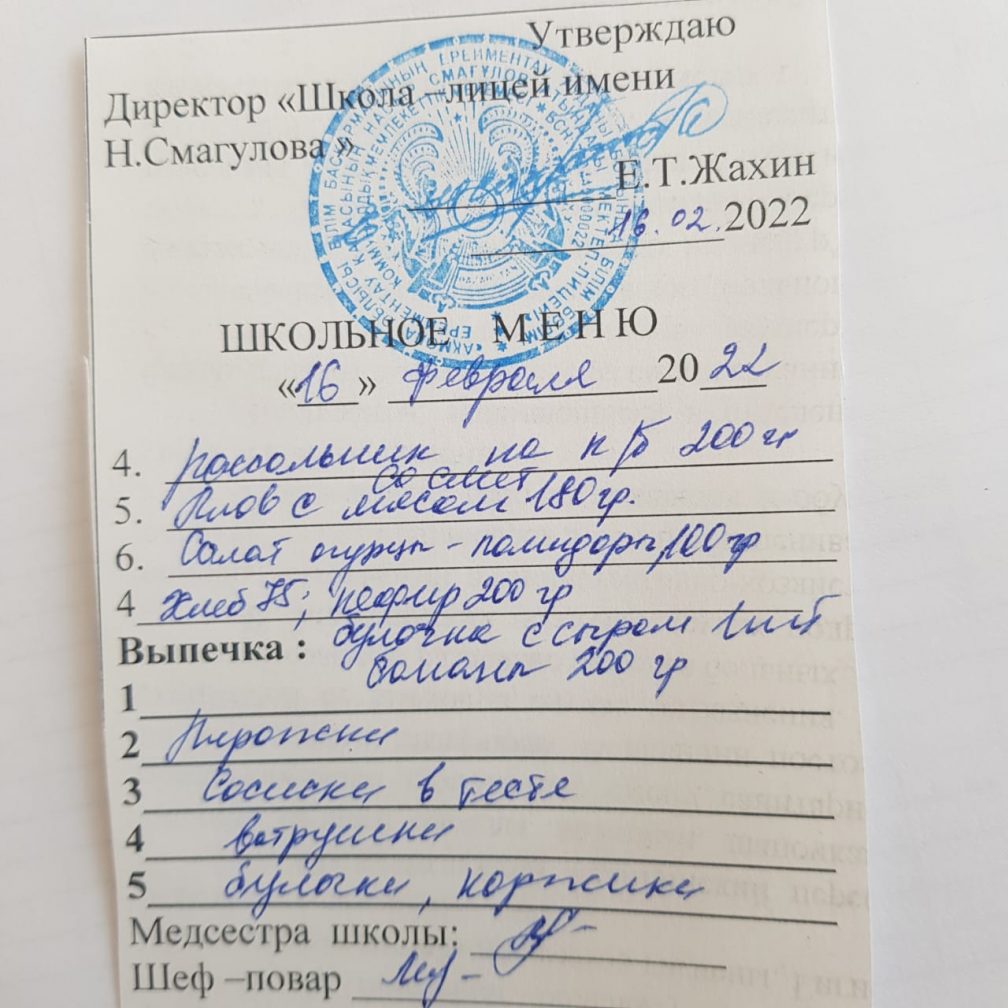 Утверждаю
Директор «Школа –лицей имени
Н.Смагулова »
Е.Т.Жахин
16.02.2022
ШКОЛЬНОЕ М Е Н Ю
«16» февраля 2022
4. рассольник на к/б 200 гр
со смет
5. Плов с мясом 180гр.
6. Салат огурцы - помидоры 100 гр
4 Хлеб 75; кефир 200 гр
булочка с сыром 1шт
Выпечка :
бананы 200 гр
1
2 Пирожки
3 Сосиски в тесте
4 ватрушки
5 булочки, коржики
Медсестра школы:
Шеф –повар